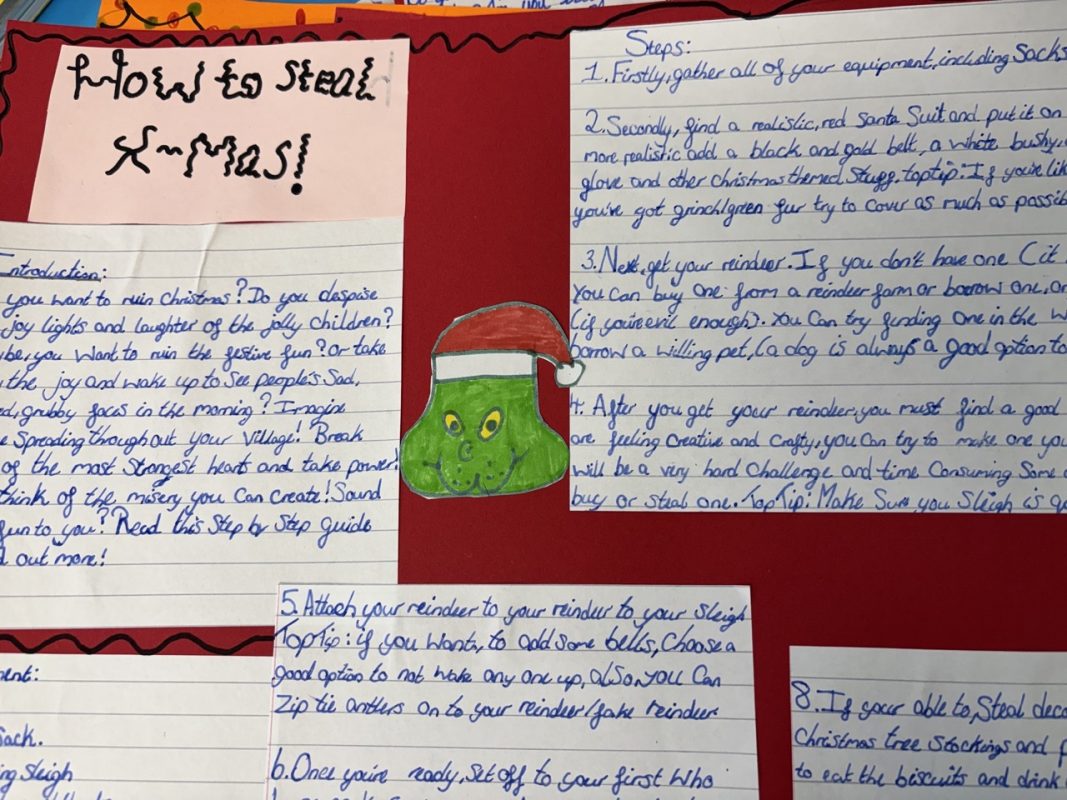 How to steal
X-Mas!
Introduction:
you want to ruin christmas? Do you despise
joy lights and laughter of the jolly children?
you want to ruin the festive fun? or take
the joy and wake up to see people's sad,
grubby faces in the morning? Imagine
spreading throughout your village! Break
of the most strongest heart and take power!
think of the misery you can create! Sound
fun to you? Read this step by step guide
out more!
Sack.
Sleigh
Steps:
1. Firstly, gather all of your equipment, including Sacks
2. Secondly, find a realistic, red Santa Suit and put it on
more realistic add a black and gold belt, a white bushy,
glove and other Christmas themed stuff. toptip: If you're
you've got grinch/green fur try to cover as much as
3. Next, get your reindeer. If you don't have one (it
You can buy one from a reindeer farm or borrow one, or
(if you're evil enough). You can try finding one in the
borrow a willing pet, (a dog is always a good option to
4. After you get your reindeer, you must find a good
are feeling creative and crafty, you can try to make one
will be a very hard challenge and time consuming some
buy or steal one. Top Tip: Make Sure you Sleigh is
5. Attach your reindeer to your reindeer to your sleigh
Top Tip: if you want, to add some bells, choose a
good option to not wake any one up, also you can
Zip tie antlers on to your reindeer/fake reindeer
6. Once you're ready, set off to your first Who
8. If your able to, Steal
Christmas tree stockings and
to eat the biscuits and drink